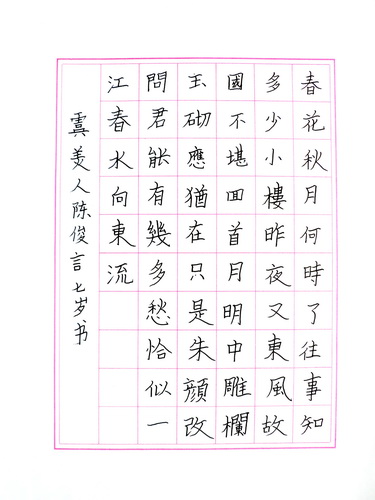 春花秋月何時了往事知
多少小樓昨夜又東風故
國不堪回首月明中雕欄
玉砌應猶在只是朱顔改
問君能有幾多愁恰似一
江春水向東流
虞美人陈俊言七岁书